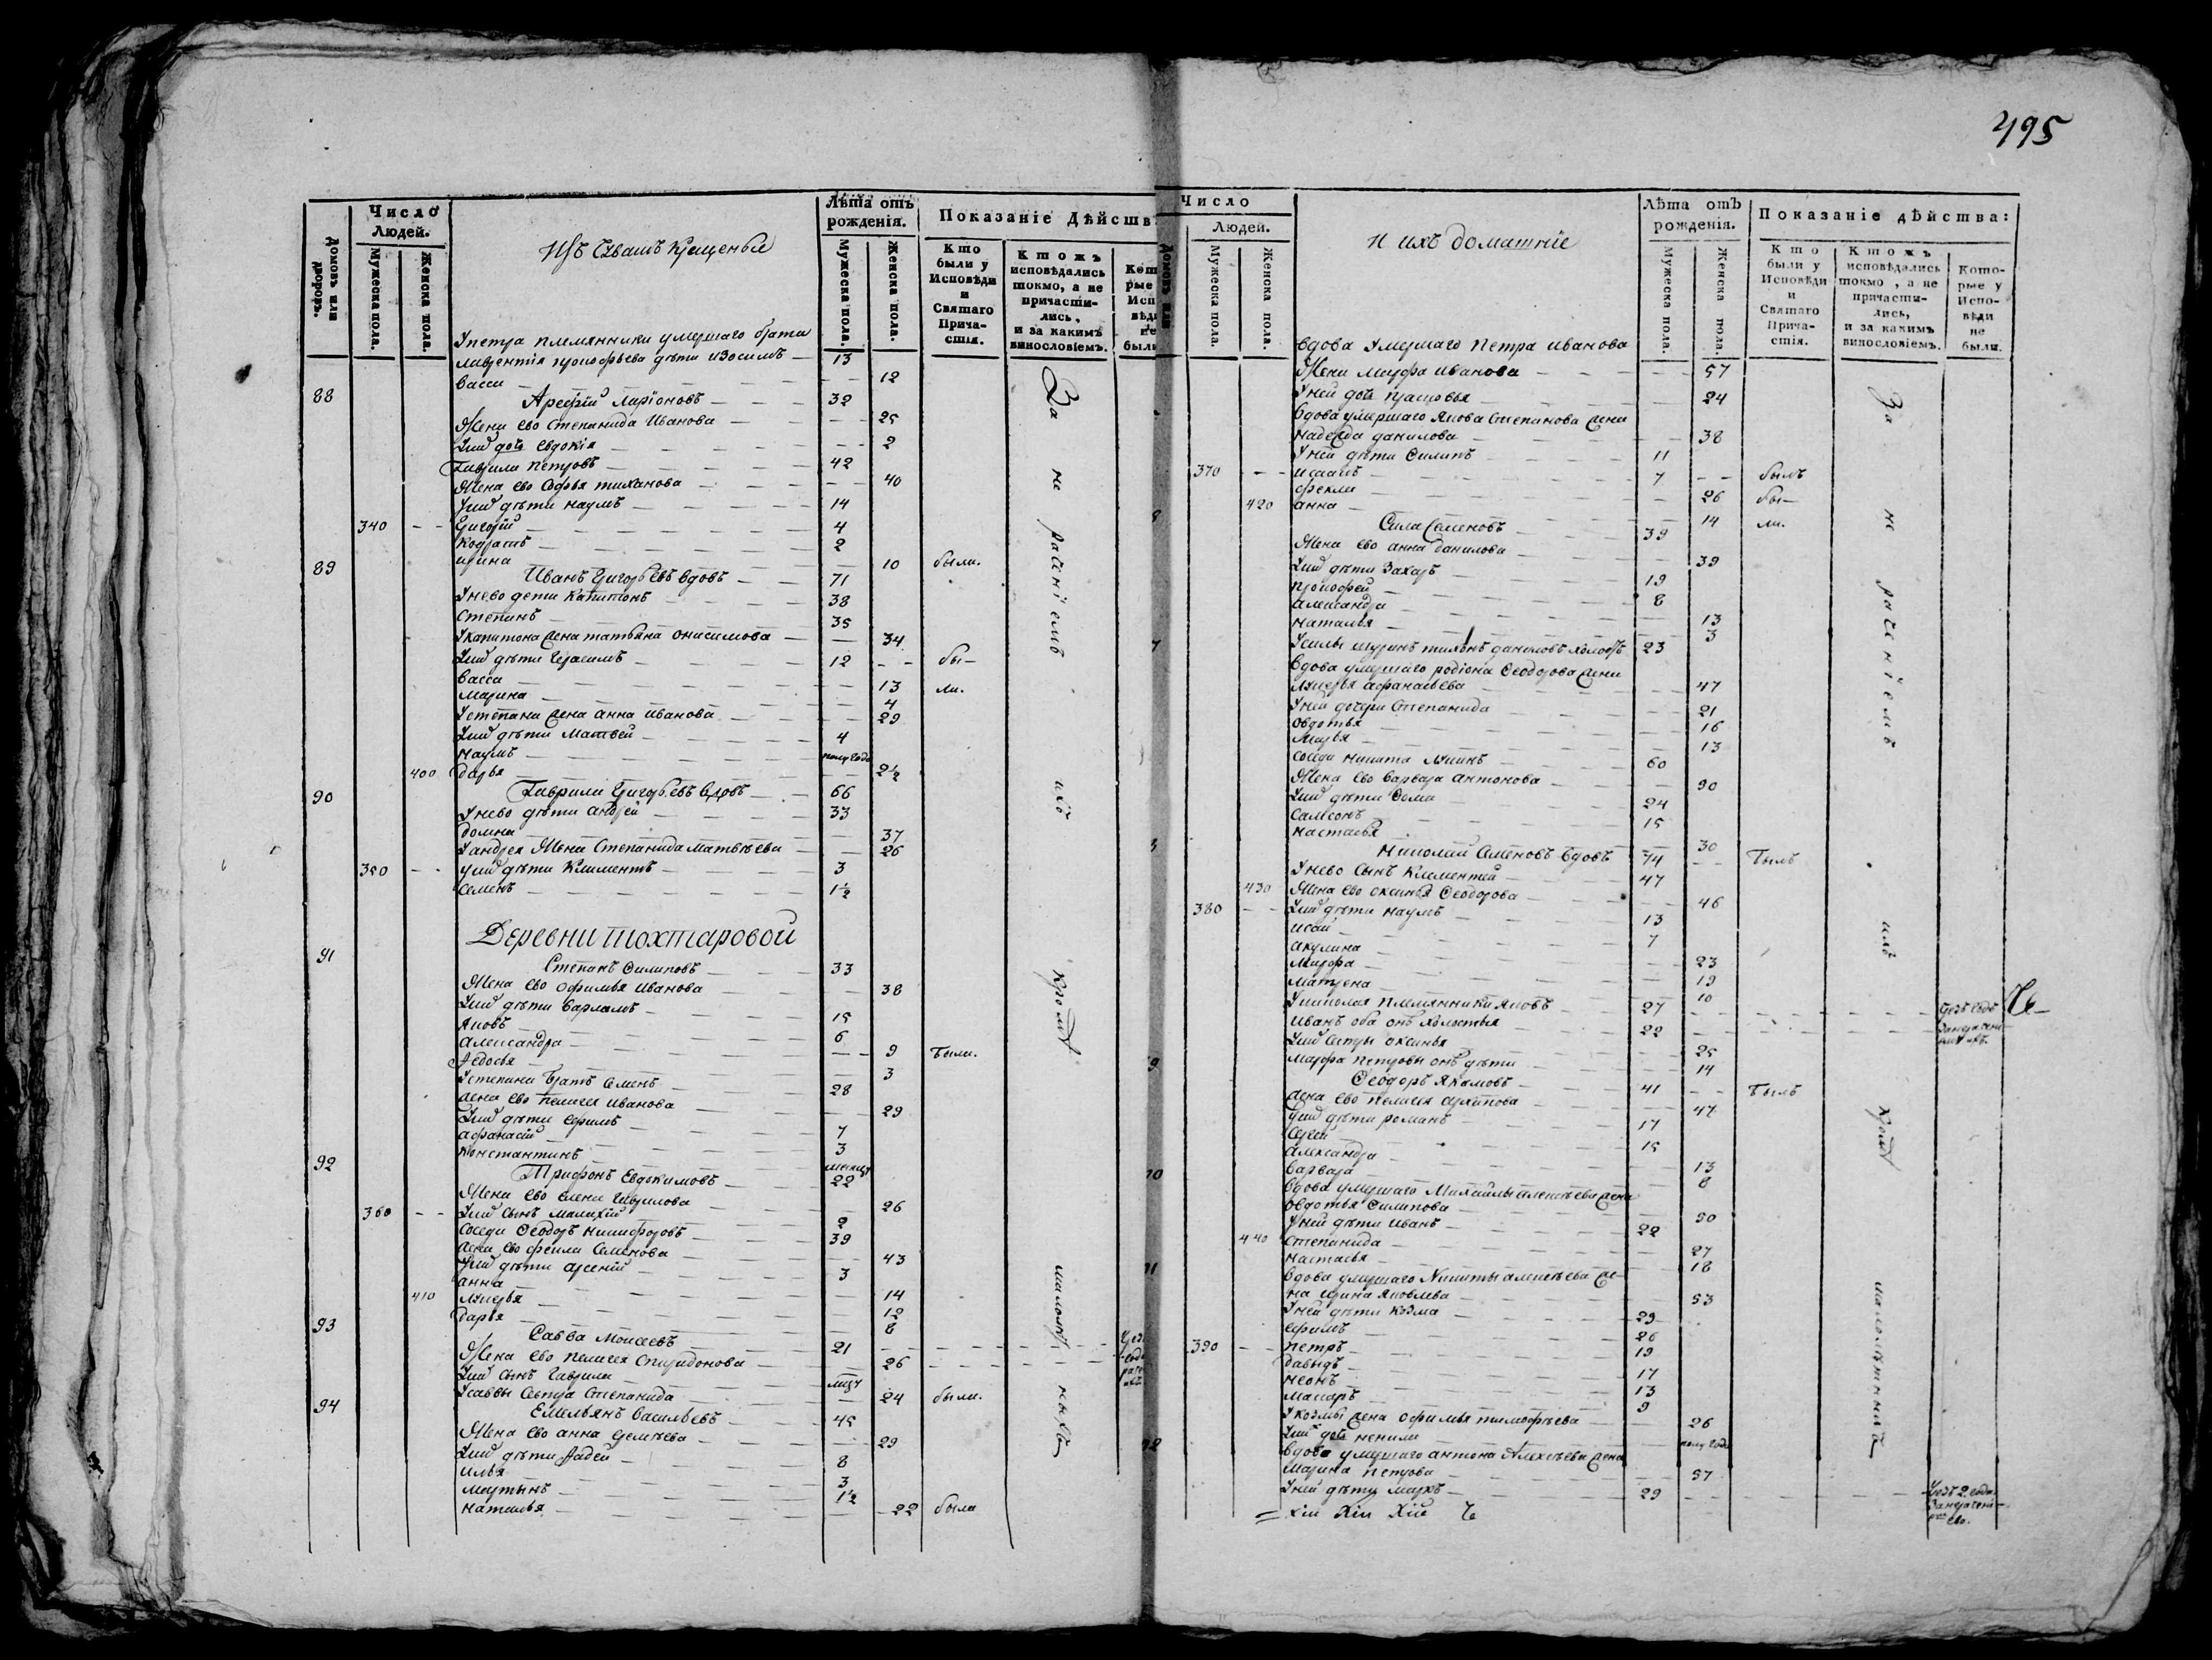 495
Число Людей.
Домовъ или дворовъ.
Мужеска пола.
Женска пола.
Изъ Чувашъ Крещеныя
Лѣта отъ рожденія.
Мужеска пола.
Женска пола.
Показаніе Дѣйств
Кто были у Исповѣди и Святаго Прича-стія.
Ктожъ исповѣдались токмо, а не причасти-лись, и за какимъ винословіемъ.
Упетра племянники умершаго брата
лаврентія прокофьева дѣти изосимъ 13
васса 12
88 Арефій ларіоновъ 32
Жена ево степанида Иванова 25
Уних дочь евдокія 2
Гаврила петровъ 42
Жена ево Софья тиханова 40
Уних дѣти наумъ 14
340 Григорій 4
Кодратъ 2
ирина 10 были.
89 Иванъ Григорьевъ вдовъ 71
Унево дети Капитонъ 38
Степанъ 35
Укапитона жена татьяна онисимова 34
Уних дѣти Герасимъ 12 бы-
васса 13 ли.
Марина 4
Устепана жена анна иванова 29
Уних дѣти Матвей 4
наумъ полугода
400 дарья 2½
90 Гаврила Григорьевъ вдовъ 66
Унево дѣти андрей 33
домна 37
Уандрея Жена Степанида Матвѣева 26
350 уних дѣти Климентъ 3
семенъ 1½
Деревни тохтаровой
91 Степанъ Филиповъ 33
Жена ево офимья иванова 38
Уних дѣти варламъ 15
яковъ 6
александра 9 были.
Федосья 3
Устепана братъ семенъ 28
жена ево пелагея иванова 29
Уних дѣти ефимъ 7
афанасій 3
Константинъ
92 Трифонъ Евдокимовъ 22
Жена ево елена гаврилова 26
360 Уних сынъ малахій 2
соседи Феодоръ никифоровъ 39
жена ево фекла Семенова 43
Уних дѣти арсеній 3
анна 14
410 лукерья 12
дарья 8
93 Савва Моисеевъ 21
Жена ево пелагея спиридонова 26
Уних сынъ гаврила
Усаввы сестра Степанида 24 были.
94 Емельянъ васильевъ 45
Жена ево анна 29
Уних дѣти Фадей 8
илья 3
мартынъ 1½
наталья 22 была
За не раченіемъ ихъ кромѣ малолѣтныхъ
Число Людей.
Мужеска пола.
Женска пола.
и ихъ домашніе
Лѣта отъ рожденія.
Мужеска пола.
Женска пола.
Показаніе дѣйства:
Кто были у Исповѣди и Святаго Прича-стія.
Ктожъ исповѣдались токмо, а не причасти-лись, и за какимъ винословіемъ.
Кото-рые у Испо-вѣди не были.
вдова умершаго петра иванова
Жена марфа иванова 57
Уней дочь прасковья 24
вдова умершаго якова степанова жена
надежда данилова 38
Уней дѣти Филипъ 11
370 исаакъ 7 былъ
фекла 26 бы-
420 анна 14 ли.
Сила Семеновъ 39
Жена ево анна данилова 39
Уних дѣти Захаръ 19
прокофей 8
александра 13
наталья 3
Усилы шуринъ тихонъ даниловъ холостъ 23
вдова умершаго родіона Феодорова жена
лукерья афанасьева 47
Уней дочери Степанида 21
овдотья 16
марья 13
соседи никита лукинъ 60
Жена ево варвара антонова 90
Уних дѣти Фома 24
самсонъ 15
настасья 30
Николай Семеновъ вдовъ 74 былъ
Унево сынъ Клементей 47
430 Жена ево оксинья Феодорова 46
380 Уних дѣти наумъ 13
исай 7
акулина 23
марфа 19
матрена 10
Униколая племянники яковъ 27
иванъ оба онѣ холостыя 22
Уних сестры оксинья 25
марфа петровы онѣ дѣти 14
Феодоръ якимовъ 41 былъ
жена ево пелагея архипова 47
уних дѣти романъ 17
Сергей 15
александра 13
варвара 8
вдова умершаго Михайлы алексѣева жена
овдотья Филипова 50
Уней дѣти иванъ 22
440 степанида 27
настасья 18
вдова умершаго Никиты алексѣева же-
на ирина яковлева 53
Уней дѣти козма 29
ефимъ 26
390 петръ 19
давыдъ 17
неонъ 13
макаръ 9
Укозмы жена офимья тимофѣева 26
Уних дочь ненила полугода
вдова умершаго антона Алексѣева жена
марина петрова 57
Уней дѣти маркъ 29
За не раченіемъ ихъ кромѣ малолѣтныхъ